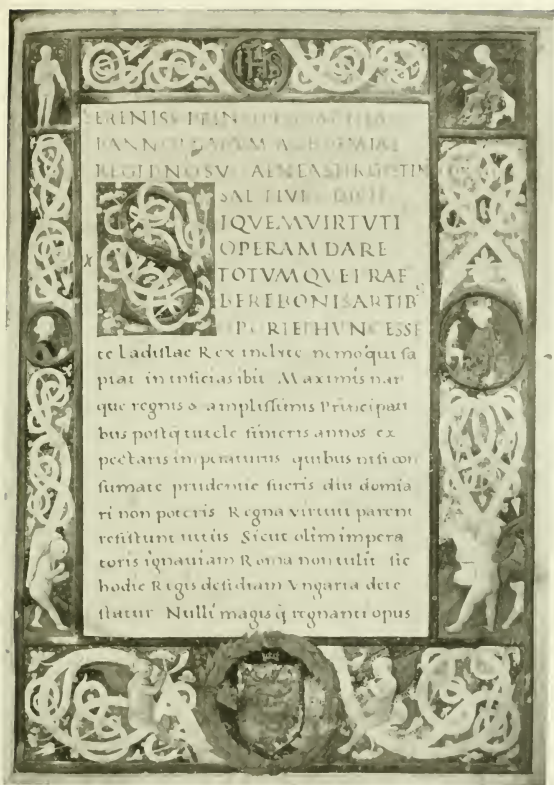 IHS
SERENISS PRIN
PANNO
REGI DNO SVO AENEAS
SAL PLVR
SIQVEM VIRTVTI
OPERAM DARE
TOTVMQVE PRAE
BERE BONIS ARTIB
OPORTET HVNC ESSE
te Ladislae Rex inclite nemo qui sa
piat in inficias ibit Maximis nan
que regnis & amplissimis Principati
bus postq̃ tutele fueris annos ex
pectaris imperaturus quibus nisi con
sumate prudentie fueris diu domia
ri non poteris Regna virtuti parent
resistunt uitiis Sicut olim impera
toris ignauiam Roma non tulit sic
hodie Regis desidiam Vngaria dete
statur Nulli magis q̃ regnanti opus